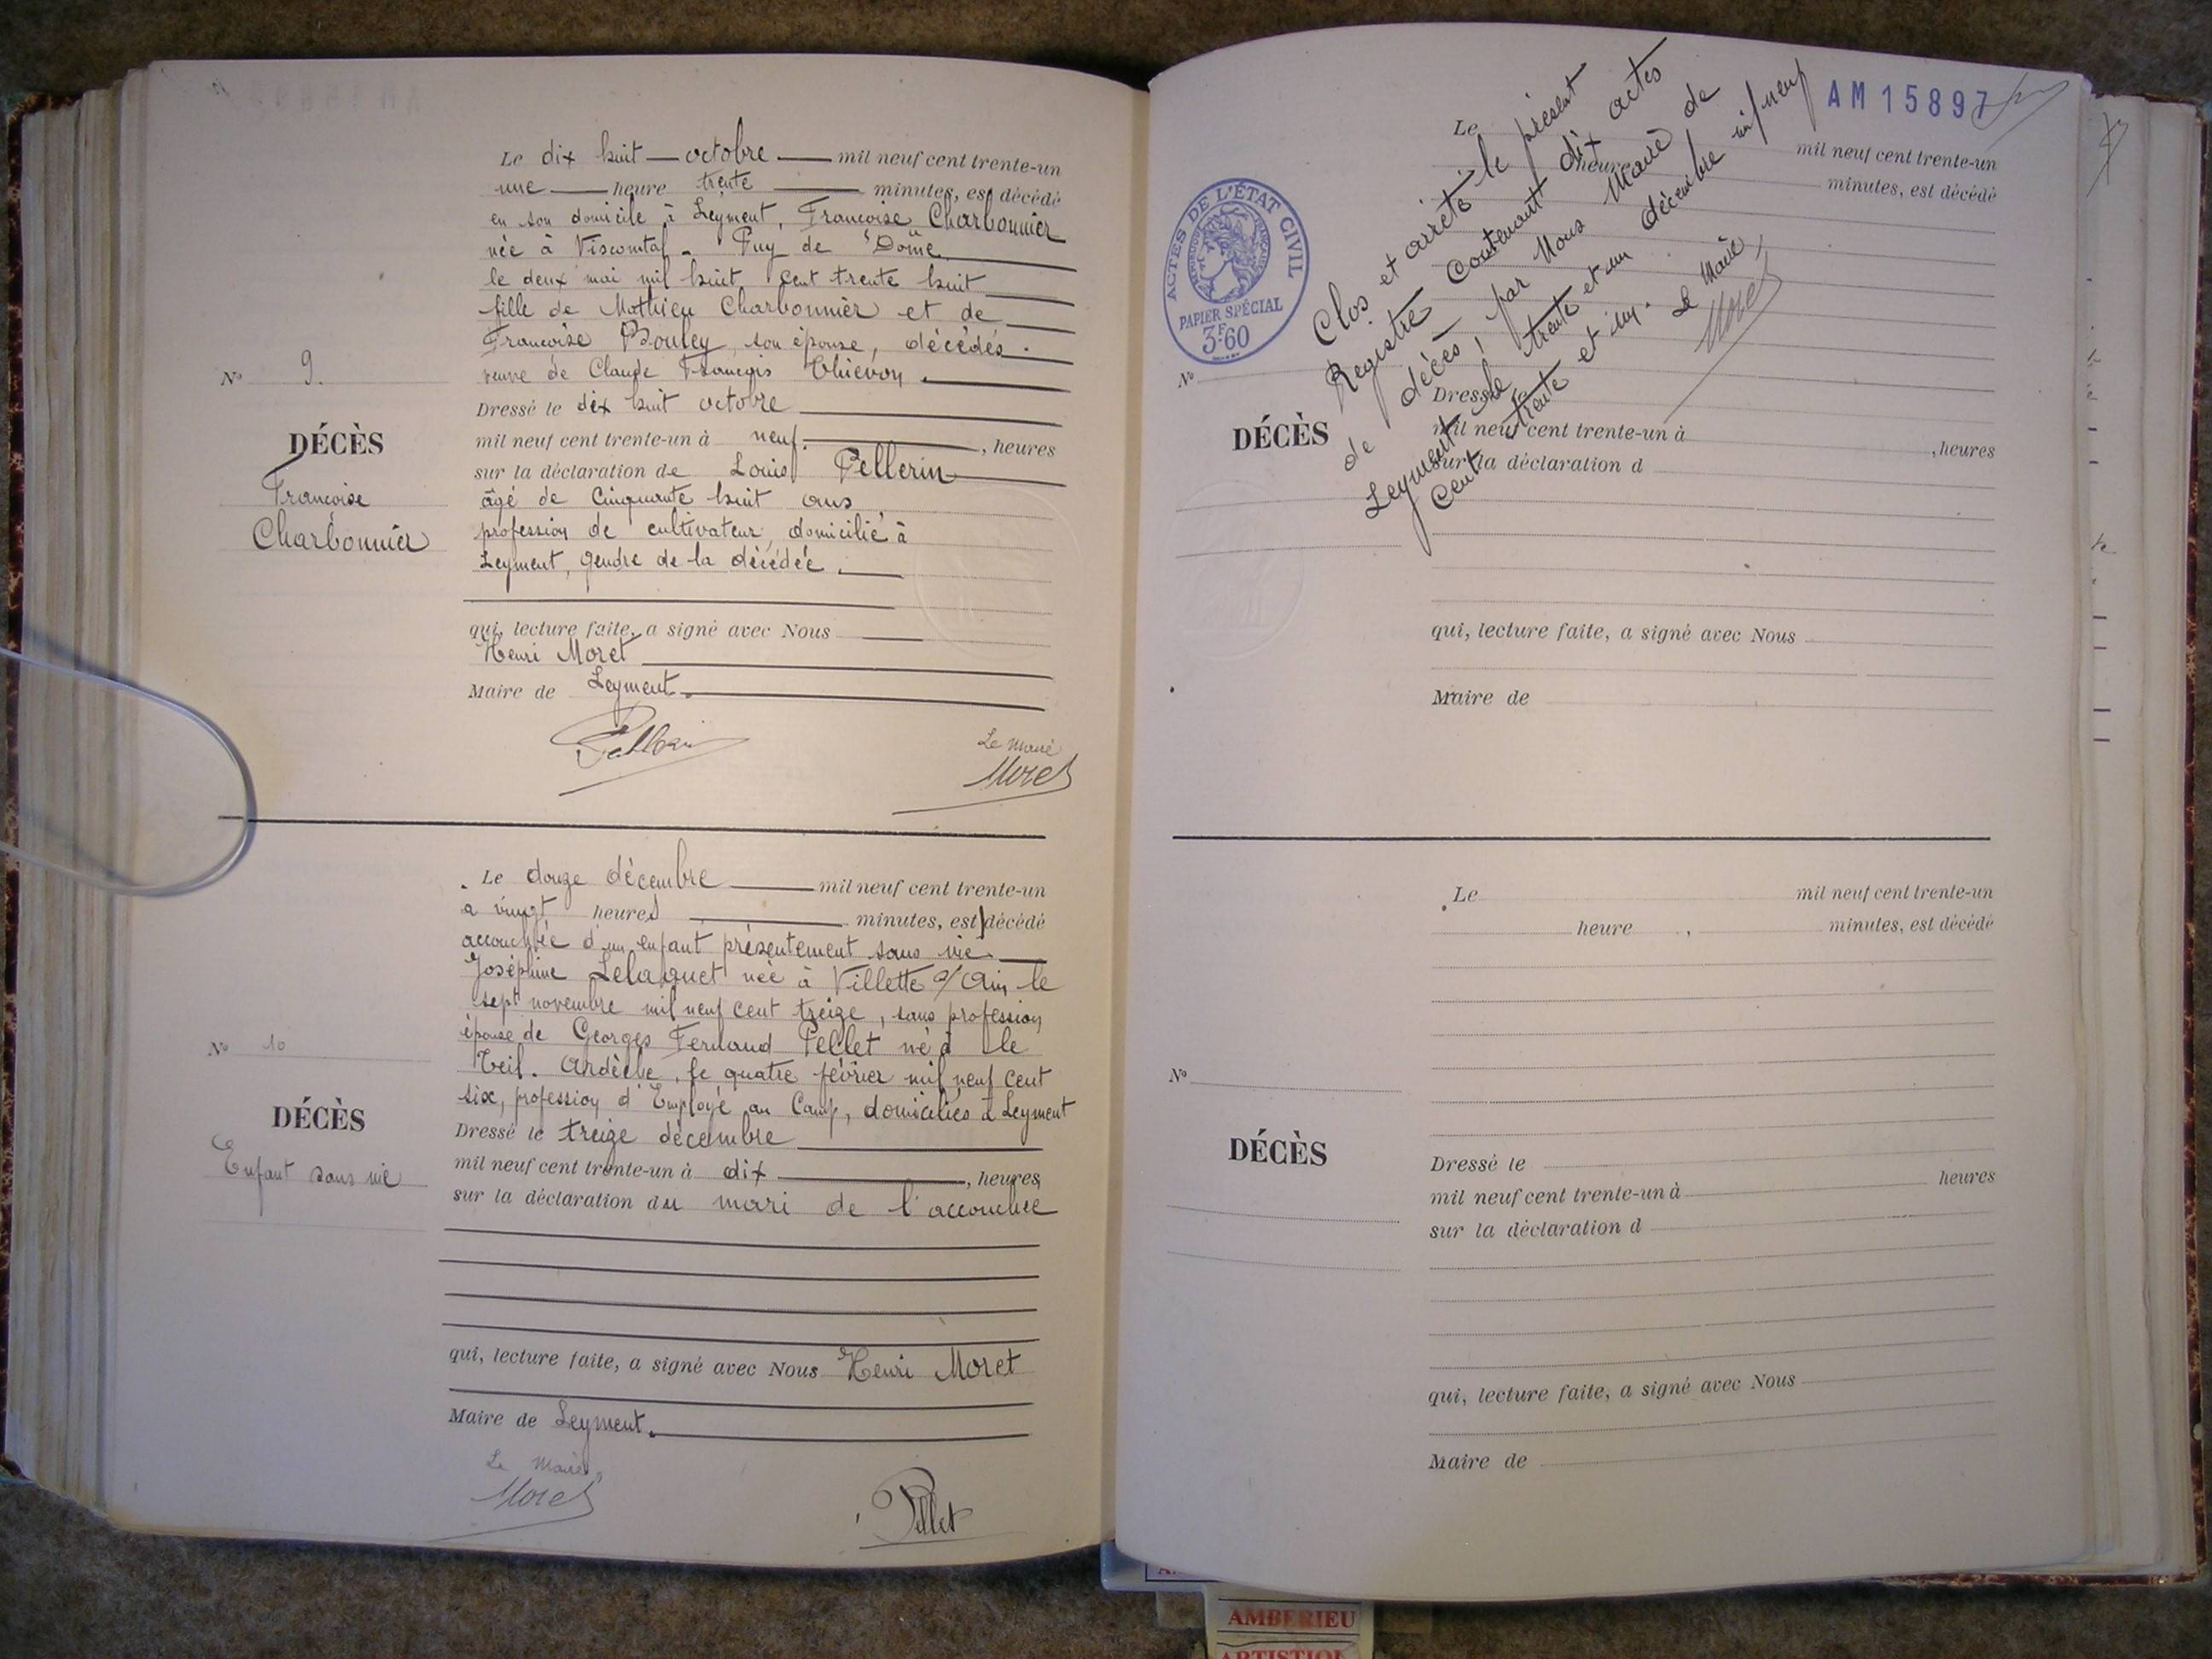 Le dix huit octobre mil neuf cent trente-un
une heure trente minutes, est décédé
en son domicile à Leyment, Françoise Charbonnier
née à Viscomtat. Puy de Dôme
le deux mai mil huit cent trente huit
fille de Mathieu Charbonnier et de
Françoise Bouley, son épouse, décédés.
veuve de Claude François Thievon.
Dressé le dix huit octobre
mil neuf cent trente-un à neuf, heures
sur la déclaration de Louis Pellerin
âgé de cinquante huit ans
profession de cultivateur, domicilié à
Leyment, gendre de la décédée.
qui, lecture faite, a signé avec Nous
Henri Moret
Maire de Leyment.
Le Maire
Moret
No 9.
DÉCÈS
Françoise
Charbonnier
Le douze décembre mil neuf cent trente-un
à vingt heures minutes, est décédé
accouchée d'un enfant présentement sans vie.
Joséphine née à Villette s/ Ain le
sept novembre mil neuf cent treize, sans profession
épouse de Georges Fernand Pellet né à Le
Teil. Ardèche, le quatre février mil neuf cent
six, profession d'Employé au Camp, domiciliés à Leyment
Dressé le treize décembre
mil neuf cent trente-un à dix, heures
sur la déclaration du mari de l'accouchée
qui, lecture faite, a signé avec Nous Henri Moret
Maire de Leyment.
Le Maire,
Moret
Pellet
No 10
DÉCÈS
Enfant sans vie
AM 15897
Clos et arrêté le présent
Registre contenant dix actes
de décès, par Nous Maire de
Leyment le trente et un décembre mil neuf
cent trente et un. Le Maire,
Moret
ACTES DE L'ÉTAT CIVIL
PAPIER SPÉCIAL
3F.60
Le mil neuf cent trente-un
heure minutes, est décédé
No
DÉCÈS
Dressé le
mil neuf cent trente-un à , heures
sur la déclaration d
qui, lecture faite, a signé avec Nous
Maire de
Le mil neuf cent trente-un
heure , minutes, est décédé
No
DÉCÈS
Dressé le
mil neuf cent trente-un à heures
sur la déclaration d
qui, lecture faite, a signé avec Nous
Maire de
AMBERIEU